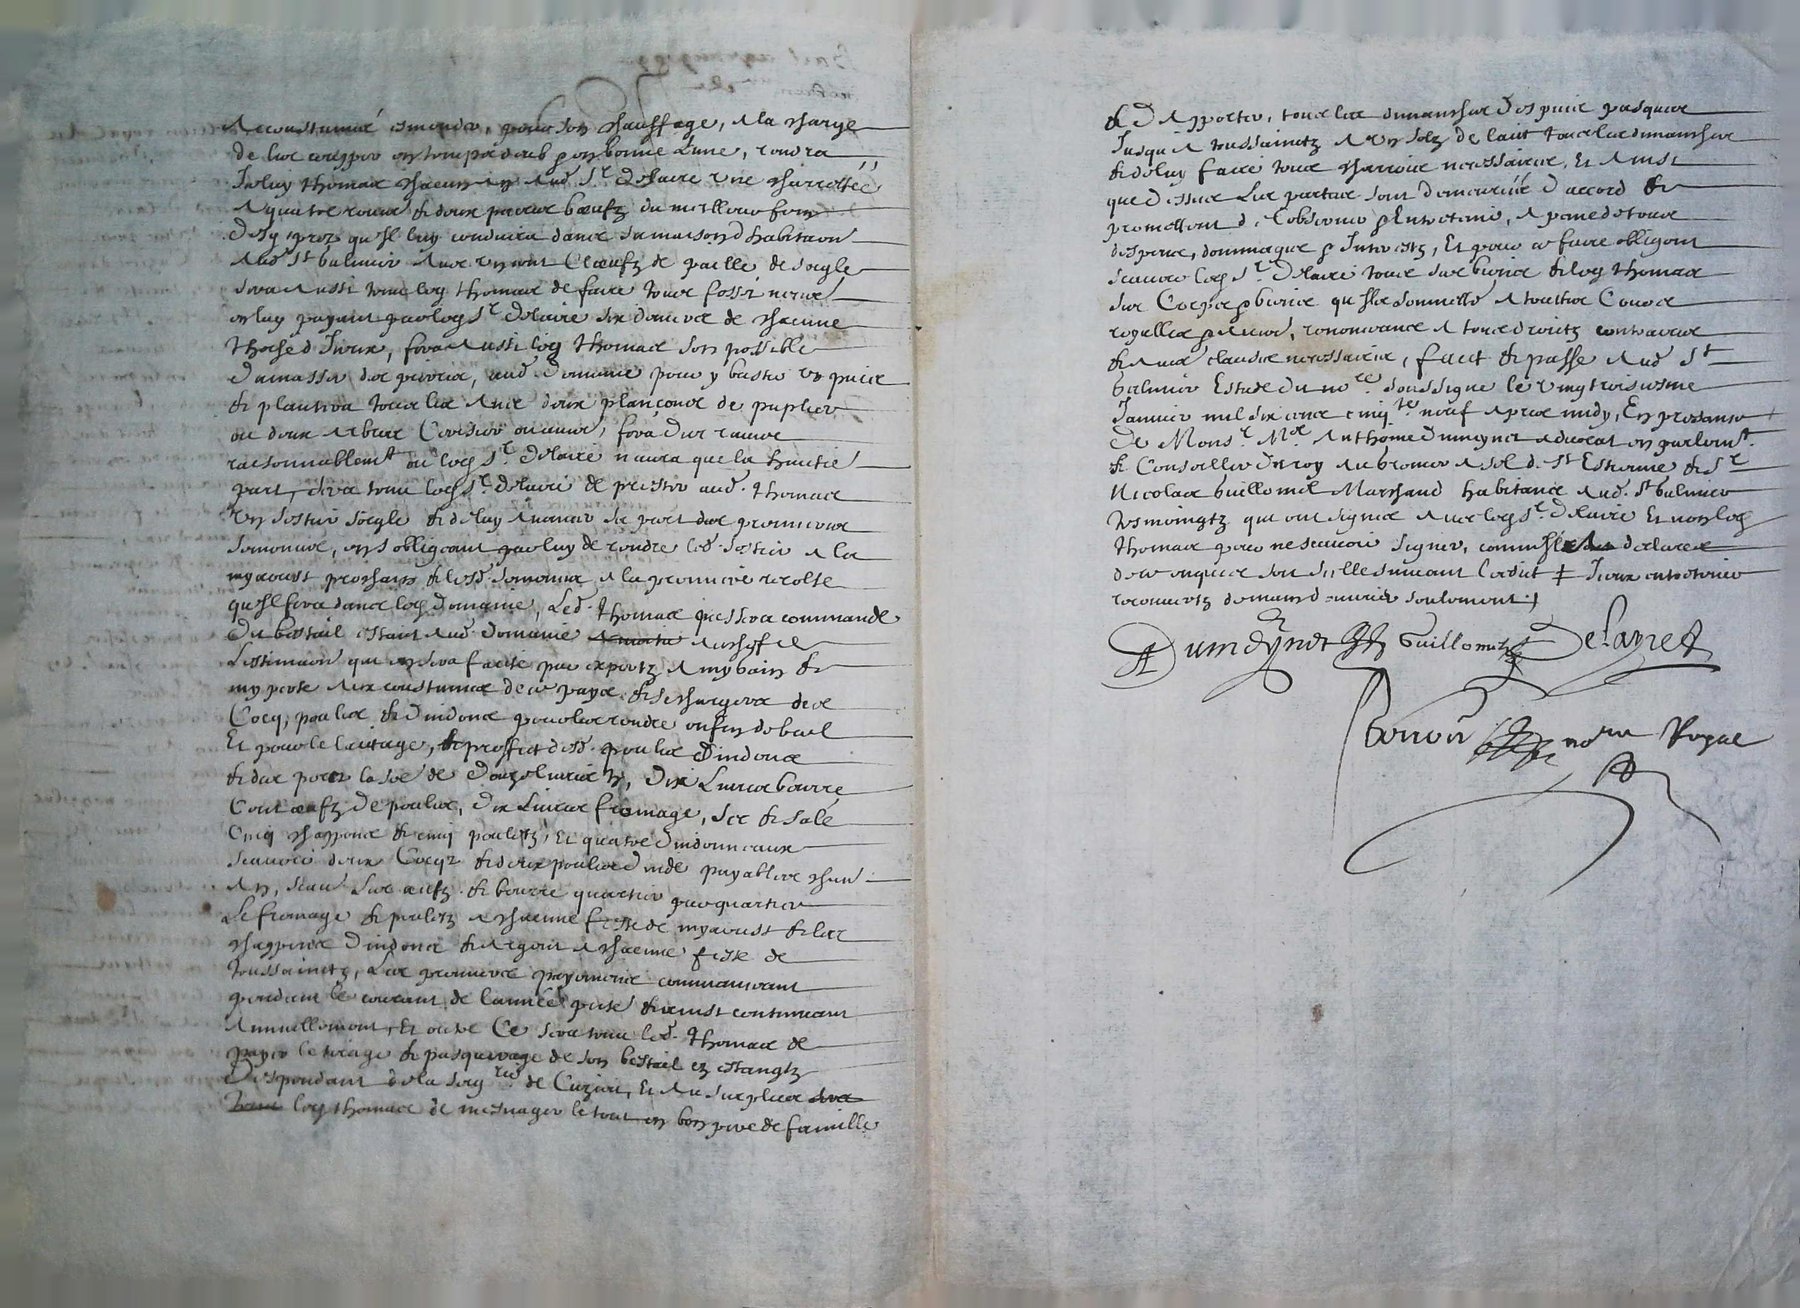 accoustumé esmonder, pour son chauffage, a la charge
de les coupper en temps deub & en bonne lune, rendra
Icelluy Thomas chacun an aud. Sr Delaire une charrettée
a quatre roues & deux paires bœufz du meilleur foin
desd. prez qu'il luy conduira dans sa maison d'habitaon
aud. St Galmier avec un cent cloeufz de paille de soigle
sera aussi tenu led. Thomas de faire tous fossés neufs
en luy payant par led. Sr Delaire six deniers de chacune
thoise d'Iceux, fera aussi led. Thomas son possible
d'amasser des pierres, aud. domaine pour y bastir un puis
& plantera tous les ans deux plançons de puplier
ou deux arbres cerisier ou autre, fera des raives
raisonnablemt ou led. Sr Delaire n'aura que la huitie
part, sera tenu led. Sr Delaire de prester aud. Thomas
un sestier soigle & de luy avancer sa part des premieres
semences, en s'obligeant par luy de rendre led. sestier a la
myaoust prochain & lesd. semences a la premiere recolte
qu'il fera dans led. domaine, Led. Thomas pressera commande
du bestail estant aud. domaine a rechept &
L'estimaon que en sera faicte par expertz a my gain &
my perte aux coustumes de ce pays & se chargera des
Cocq, poules & d'indons pour les rendre en fin de bail
Et pour le laictage, & proffict desd. poules d'indons
& des porcz la soe de douze livres tz, dix livres beurre
Cent œufz de poules, dix livres fromage, sec & salé
Cinq chappons & cinq pouletz, Et quatre d'indonneaux
scavoir deux Cocqz & deux poules d'inde payables chun
an, scavr les œufz & beurre quartier par quartier
Le fromage & pouletz a chacune feste de myaoust & les
chappons d'indons & argent a chacune feste de
Toussainctz, Les premiers payemens commancant
pendant le courant de l'année pnte & ainsi continuant
annuellement, Et outre Ce sera tenu led. Thomas de
payer le cirage & pasquerage de son bestail ez estangtz
despendant de la seigrie de Cuzieu, Et au surplus
led. Thomas de mesnager le tout en bon pere de famille
& d'apporter, tous les dimanches despuis pasques
Jusqu'a toussainctz a un solz de laict tous les dimanches
& de luy faire tous charrois necessaires, Et ainsi
que dessus Les parties sont demeurées d'accord &
promettent de l'observer & Entretenir, a peine de tous
despens, dommages & Interestz, Et pour ce faire obligent
scavoir led. Sr Delaire tous ses biens & led. Thomas
ses Corps & biens qu'ils soumettent a touttes Cours
royalles & autres, renoncians a tous droictz contraires
& avec clauses necessaires, faict & passé aud. St
Galmier Estude du nore soussigné le vingtroisiesme
Janvier mil six cens cinqte neuf apres midy, En presence
de Monsr Mre Anthoine Dumeynet advocat en parlemt
& Conseiller du roy au grenier a sel de St Estienne & Sr
Nicolas Guillomet Marchand habitans aud. St Galmier
tesmoingtz qui ont signés avec led. Sr Delaire Et non led.
Thomas pour ne scavoir signer, comme il a declaré
de ce enquis soit scellé suivant l'edict ‡ Iceux entretenir
recouvertz de main d'œuvre seulement ‡
Dumeynet Guillomet Delayre
Bonnier nore Royal